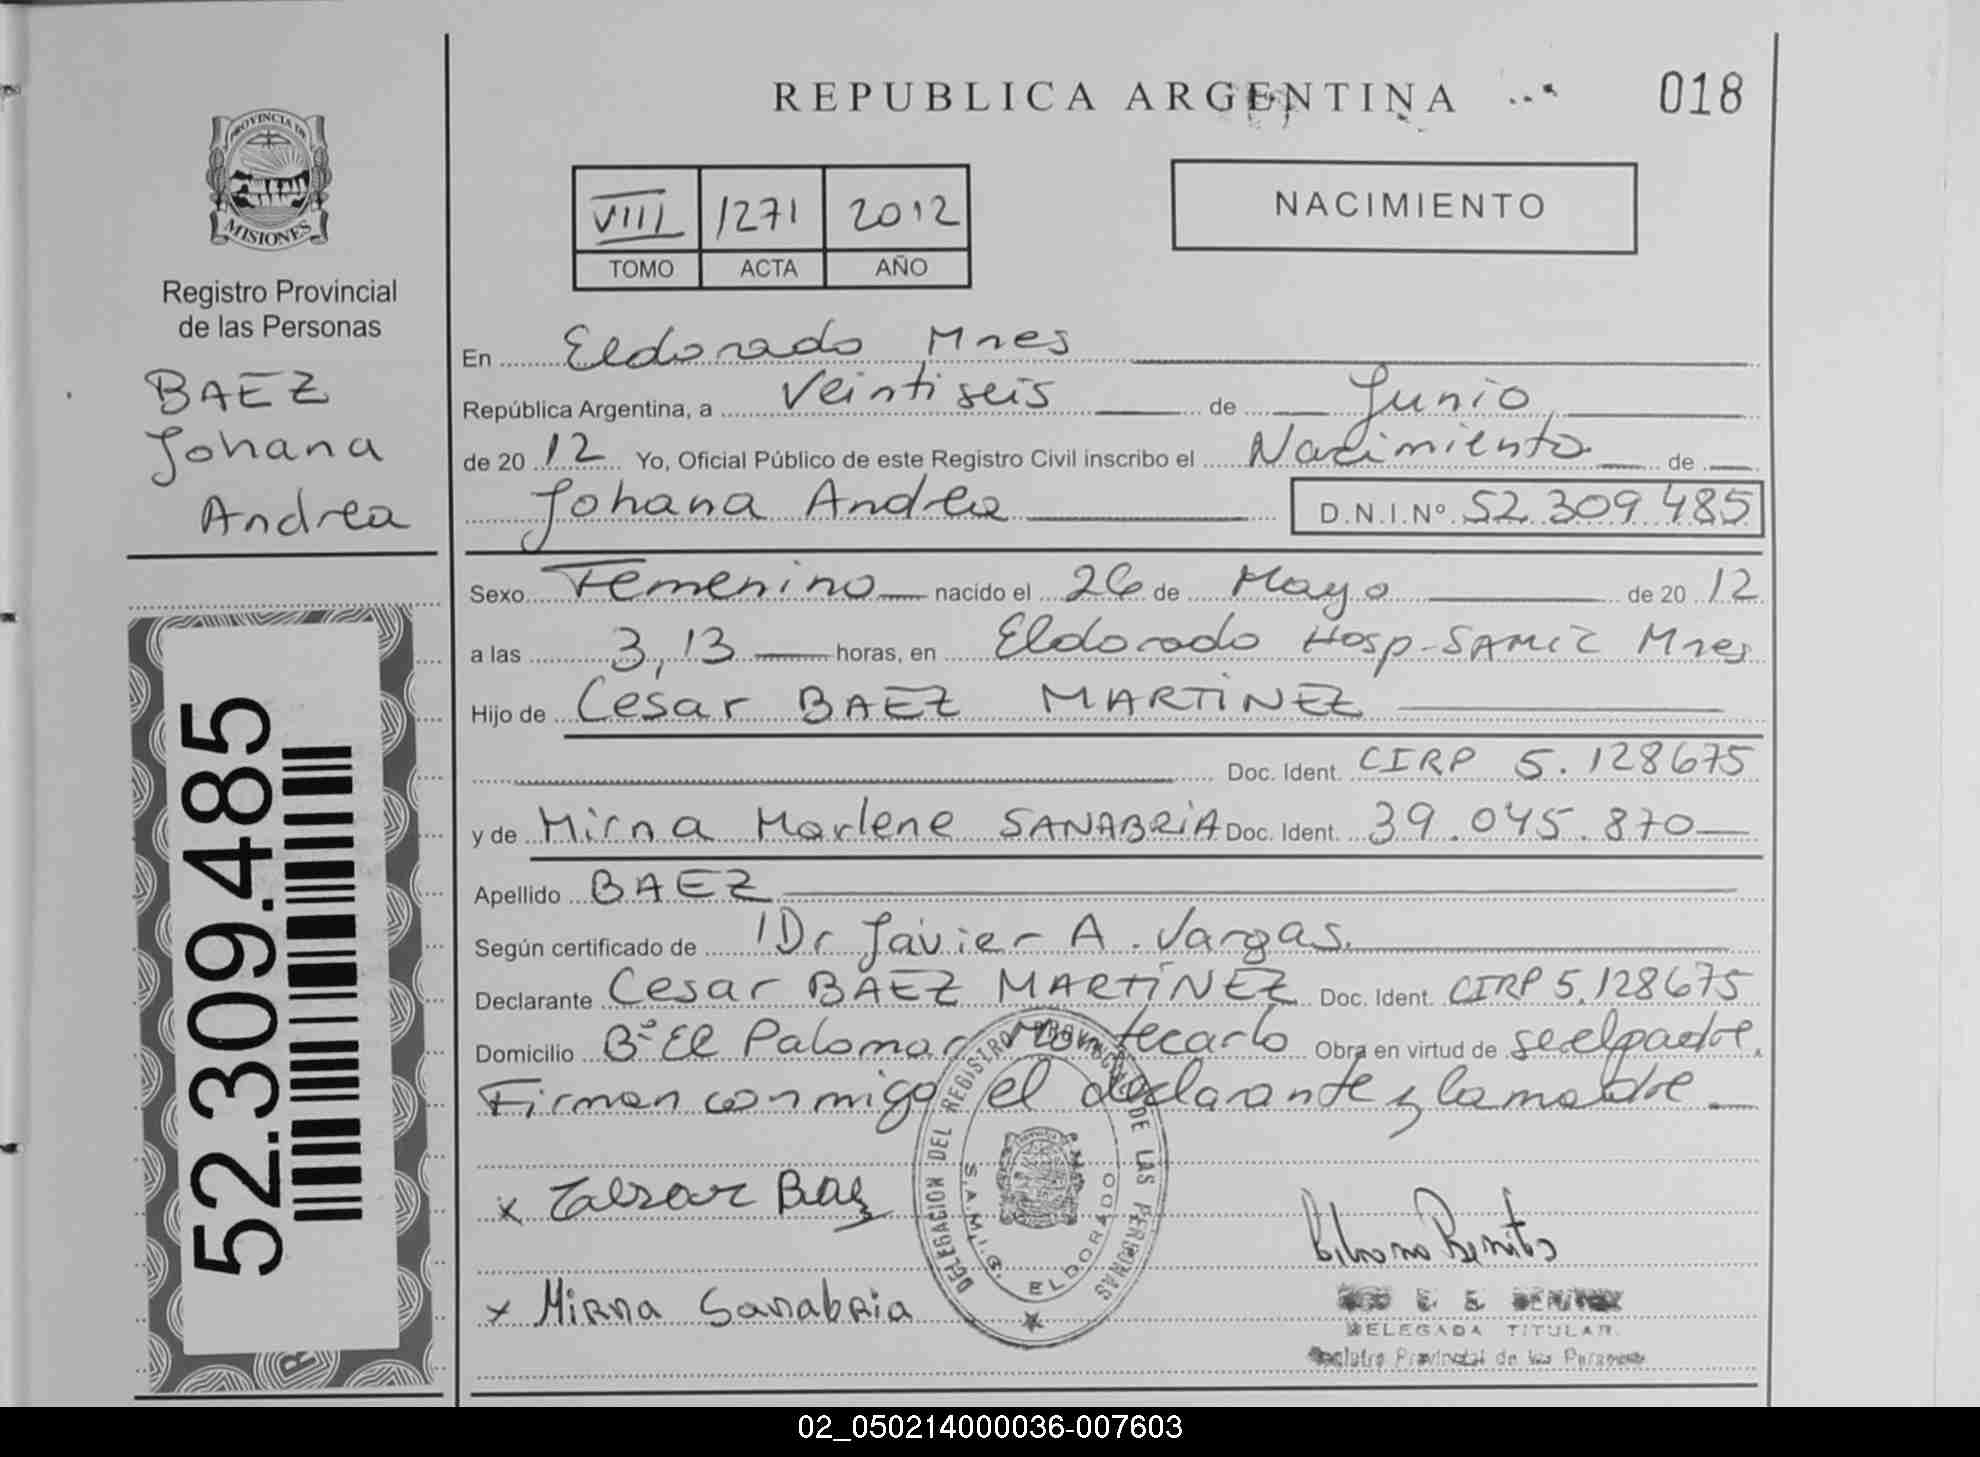 REPUBLICA ARGENTINA
018
PROVINCIA DE
MISIONES
Registro Provincial
de las Personas
BAEZ
Johana
Andrea
52.309.485
VIII 1271 2012
TOMO ACTA AÑO
NACIMIENTO
En Eldorado Mnes
República Argentina, a Veintiseis de Junio
de 20 12 Yo, Oficial Público de este Registro Civil inscribo el Nacimiento de
Johana Andrea D.N.I.Nº 52.309.485
Sexo Femenino nacido el 26 de Mayo de 20 12
a las 3,13 horas, en Eldorado Hosp-SAMIC Mnes
Hijo de Cesar BAEZ MARTINEZ
Doc. Ident. CIRP 5.128675
y de Mirna Marlene SANABRIA Doc. Ident. 39.045.870
Apellido BAEZ
Según certificado de Dr Javier A. Vargas
Declarante Cesar BAEZ MARTINEZ Doc. Ident. CIRP 5.128675
Domicilio Bº El Palomar Montecarlo Obra en virtud de se el padre.
Firman conmigo el declarante y la madre
x Baez
x Mirna Sanabria
DELEGACION DEL REGISTRO PROVINCIAL DE LAS PERSONAS
S.A.M.I.C. ELDORADO
Benitez
DELEGADA TITULAR
Registro Provincial de las Personas
02_050214000036-007603